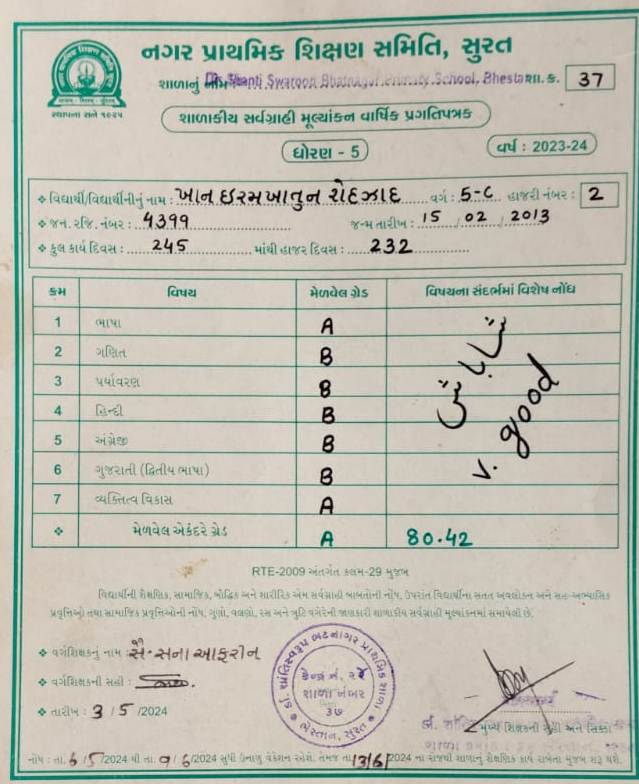 નગર પ્રાથમિક શિક્ષણ સમિતિ, સુરત
સ્થાપના સને ૧૯૨૫
શાળાનું નામ Dr. Shanti Swaroop Bhatnagar Primary School, Bhestan શા. ક્ર. 37
શાળાકીય સર્વગ્રાહી મૂલ્યાંકન વાર્ષિક પ્રગતિપત્રક
ધોરણ - 5
વર્ષ : 2023-24
❖ વિદ્યાર્થી/વિદ્યાર્થીનીનું નામ : ખાન ઇરમખાતુન રોદઝાદ વર્ગ : 5-C હાજરી નંબર : 2
❖ જન. રજિ. નંબર : 4399 જન્મ તારીખ : 15 02 2013
❖ કુલ કાર્ય દિવસ : 245 માંથી હાજર દિવસ : 232
ક્રમ વિષય મેળવેલ ગ્રેડ વિષયના સંદર્ભમાં વિશેષ નોંધ
1 ભાષા A
2 ગણિત B
3 પર્યાવરણ B
4 હિન્દી B
5 અંગ્રેજી B
6 ગુજરાતી (દ્વિતીય ભાષા) B
7 વ્યક્તિત્વ વિકાસ A
شاباش
v. good
❖ મેળવેલ એકંદરે ગ્રેડ A 80.42
RTE-2009 અંતર્ગત કલમ-29 મુજબ
વિદ્યાર્થીની શૈક્ષણિક, સામાજિક, બૌદ્ધિક અને શારીરિક એમ સર્વગ્રાહી બાબતોની નોંધ, ઉપરાંત વિદ્યાર્થીના સતત અવલોકન અને સહ-અભ્યાસિક
પ્રવૃત્તિઓ તથા સામાજિક પ્રવૃત્તિઓની નોંધ, ગુણો, વલણો, રસ અને ત્રુટિ વગેરેની જાણકારી શાળાકીય સર્વગ્રાહી મૂલ્યાંકનમાં સમાયેલી છે.
❖ વર્ગશિક્ષકનું નામ : સૈ. સના આફરીન
❖ વર્ગશિક્ષકની સહી :
❖ તારીખ : 3 / 5 /2024
ડૉ. શાંતિસ્વરૂપ ભટનાગર પ્રાથમિક શાળા
કેન્દ્ર નં. ૨૨
શાળા નંબર
૩૭
ભેસ્તાન, સુરત
મુખ્ય શિક્ષકની સહી અને સિક્કો
નોંધ : તા. 6 / 5 /2024 થી તા. 9 / 6 /2024 સુધી ઉનાળુ વેકેશન રહેશે. તેમજ તા. 13/6/2024 ના રોજથી શાળાનું શૈક્ષણિક કાર્ય રાબેતા મુજબ શરૂ થશે.